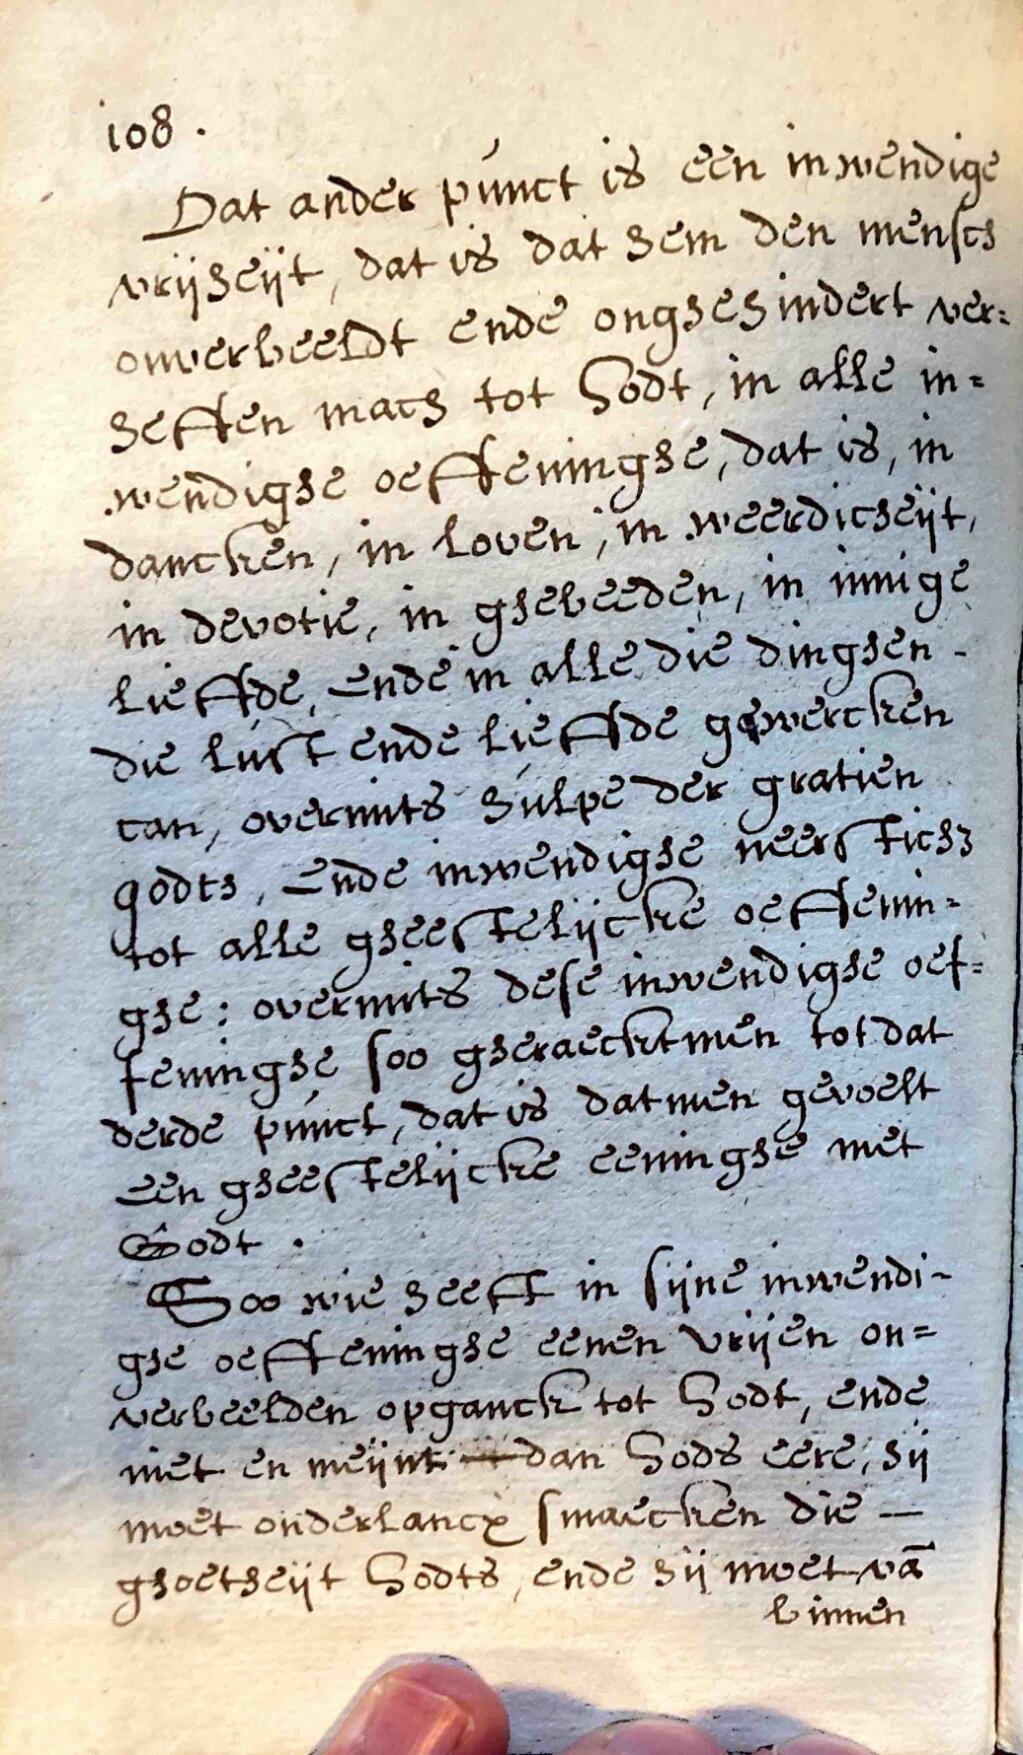 108.
Dat ander punct is een inwendige
vrijheijt, dat is dat hem den mensch
onverbeeldt ende onghehindert ver=
heffen mach tot Godt, in alle in=
wendighe oeffeninghe, dat is, in
dancken, in loven, in weerdicheijt,
in devotie, in ghebeeden, in innige
liefde, ende in alle die dinghen -
die lust ende lieffde gewercken
can, overmits hulpe der gratien
godts, ende inwendighe neersticht
tot alle gheestelijcke oeffenin=
ghe: overmits dese inwendighe oef=
feninghe soo gheraecktmen tot dat
derde punct, dat is datmen gevoelt
een gheestelijcke eeninghe met
Godt.
Soo wie heeft in sijne inwendi-
ghe oeffeninghe eenen vrijen on=
verbeelden opganck tot Godt, ende
niet en meijnt dan Gods eere, hij
moet onderlancx smaecken die —
ghoetheijt Godts, ende hij moet vā
binnen